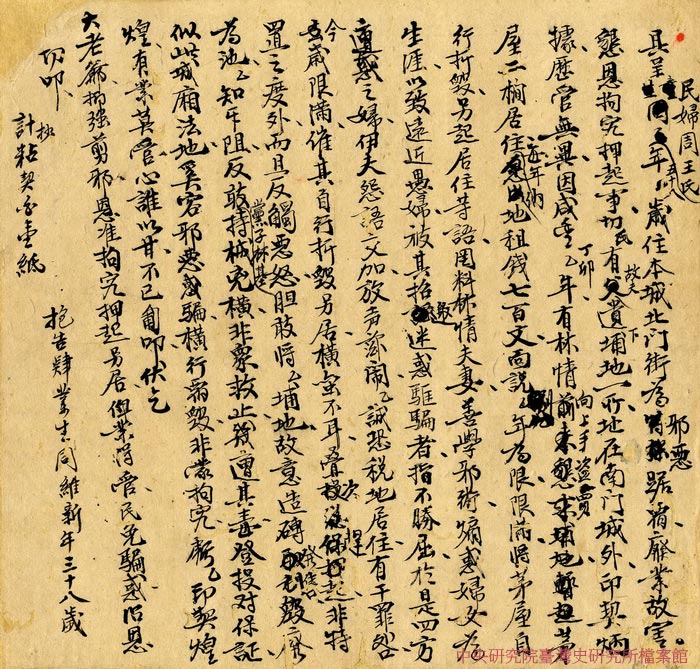 民婦周王氏
具呈年八歲住本城北門街為邪惡踞霸廢業故害。
懇恩拘究押起事切氏有故夫遺埔地一所址在南門城外印契炳
據歷管無異因咸豐丁卯年有林情向上手盜賣前來懇求埔地暫起茅
屋二榀居住逐年納地租錢七百文面說年為限限滿將茅屋自
行折毀另起居住等語罔料林情夫妻善學邪術煽惑婦女為
生涯以致遠近愚婦被其招迷惑誆騙者指不勝屈於是四方
遭惑之婦伊夫怨語交加放弄鬧誠恐税地居住有干罪咎
今歲限滿催其自行折毀另居橫蛮不耳疊投總保押起非特
置之度外而且反觸惡怒胆敢將埔地故意造磚毀
為池知干阻反敢持械兇橫非眾救止幾遭其毒登投對保証
黨仔林基
似此城廂法地奚容邪惡惑騙橫行霸毀非蒙拘究虧印契煌
煌有業莫管心誰以甘不已匍叩伏乞
大老爺抑強剪邪恩准拘究押起另居俾業得管民免騙惑沾恩
切叩
計粘契壹紙
抱告肄業生周維新年三十八歲
中央研究院臺灣史研究所檔案館